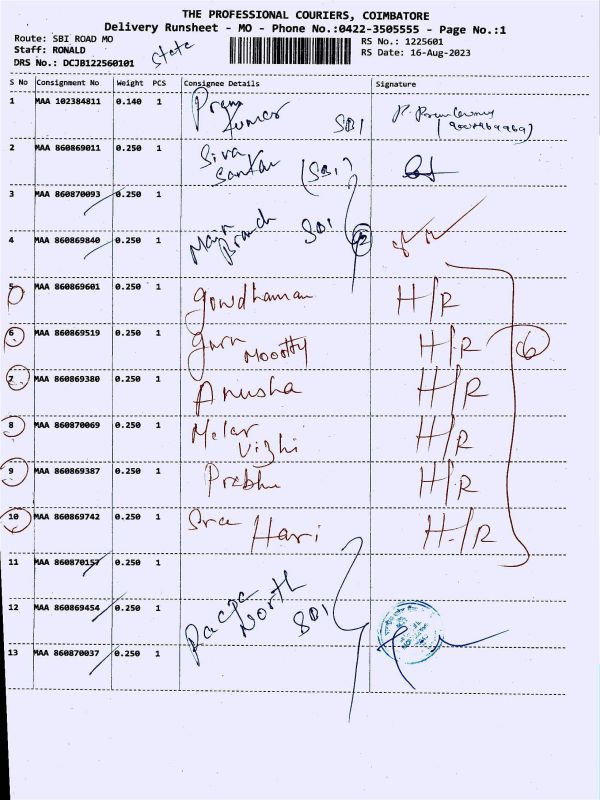 THE PROFESSIONAL COURIERS, COIMBATORE
Delivery Runsheet - MO - Phone No.:0422-3505555 - Page No.:1
Route: SBI ROAD MO
State
RS No.: 1225601
Staff: RONALD
RS Date: 16-Aug-2023
DRS No.: DCJB122560101
S No Consignment No Weight PCS Consignee Details Signature
1 MAA 102384811 0.140 1 Prem Kumar SBI
2 MAA 860869011 0.250 1 Siva Sankar (SBI)
3 MAA 860870093 0.250 1
4 MAA 860869840 0.250 1 Main Branch SBI 2
5 MAA 860869601 0.250 1 Gowdhaman H/R
6 MAA 860869519 0.250 1 Guru Moortty H/R 6
7 MAA 860869380 0.250 1 Anusha H/R
8 MAA 860870069 0.250 1 Melar Vizhi H/R
9 MAA 860869387 0.250 1 Prabhu H/R
10 MAA 860869742 0.250 1 Sree Hari H/R
11 MAA 860870157 0.250 1
12 MAA 860869454 0.250 1 North SBI
13 MAA 860870037 0.250 1